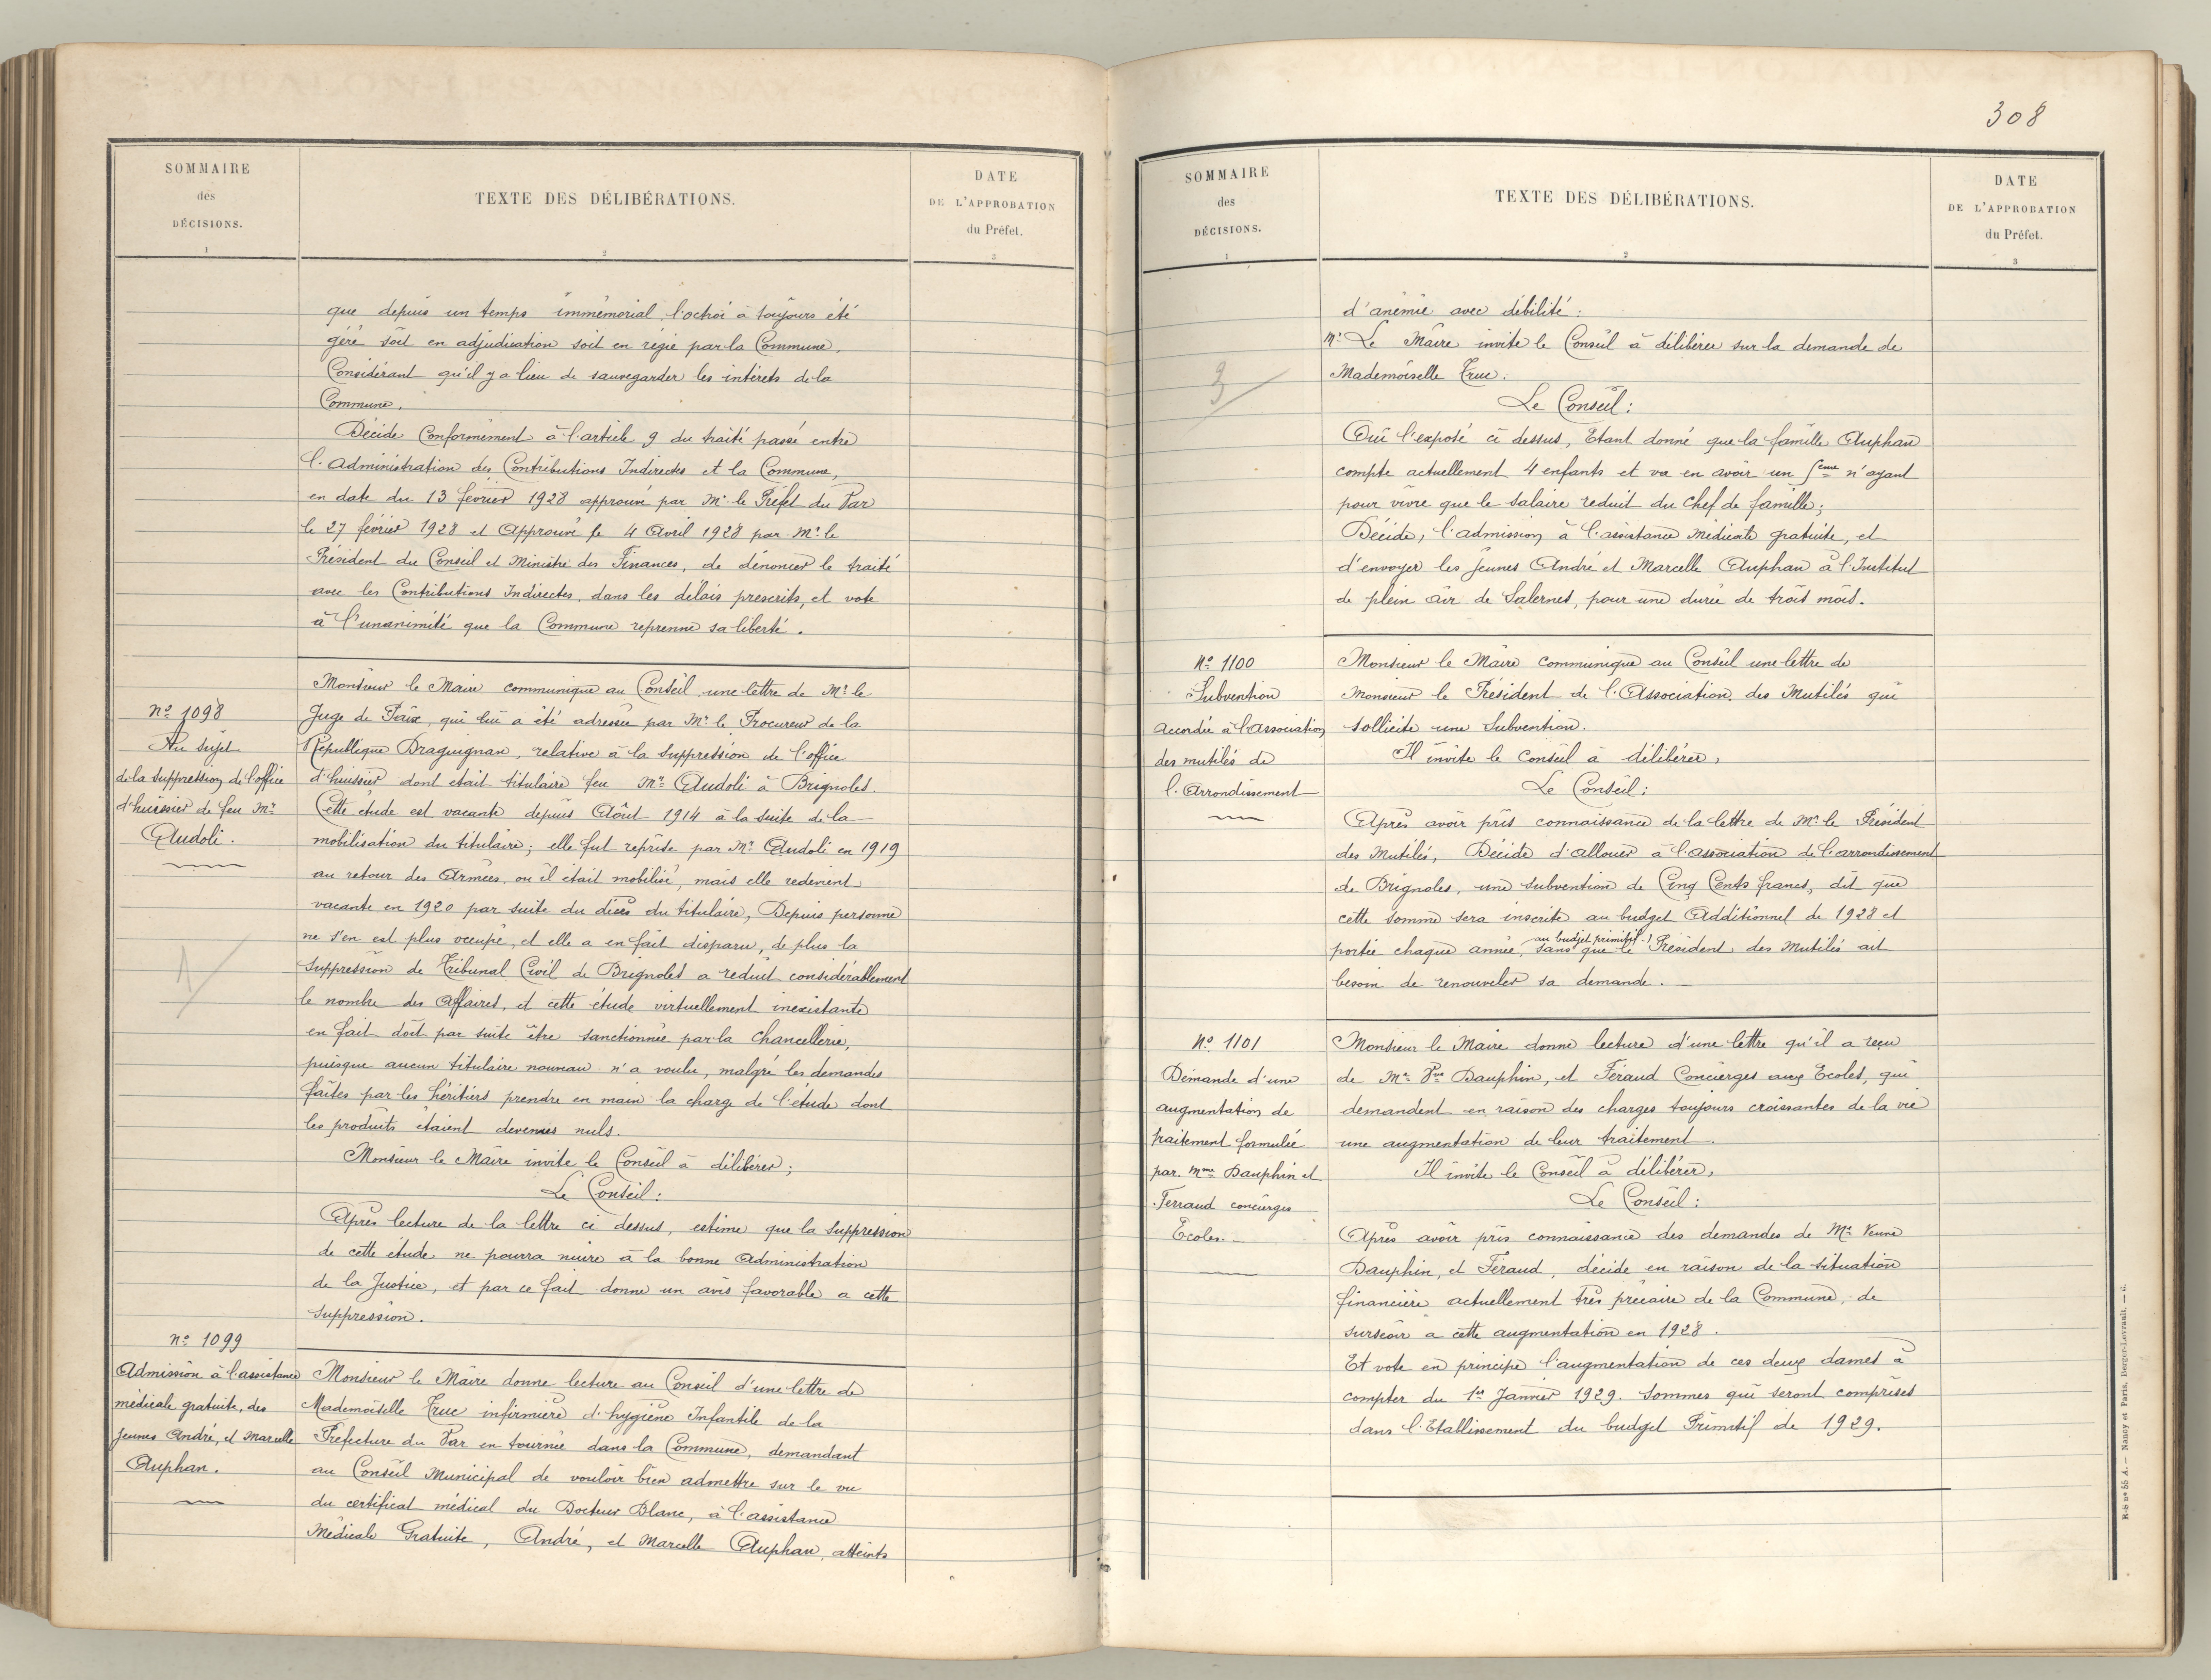 SOMMAIRE
des
DÉCISIONS.
1
TEXTE DES DÉLIBÉRATIONS.
2
DATE
DE L'APPROBATION
du Préfet.
3
que depuis un temps immémorial l'octroi à toujours été
géré soit en adjudication soit en régie par la Commune,
Considérant qu'il y a lieu de sauvegarder les intérêts de la
Commune.
Décide Conformément à l'article 9 du traité passé entre
l'Administration des Contributions Indirectes et la Commune,
en date du 13 février 1928 approuvé par Mr le Préfet du Var
le 27 février 1928 et Approuvé le 4 Avril 1928 par Mr. le
Président du Conseil et Ministre des Finances, de dénoncer le traité
avec les Contributions Indirectes, dans les délais prescrits, et vote
à l'unanimité que la Commune reprenne sa liberté.
No 1098
Au sujet
de la suppression de l'office
d'huissier de feu Mr
Audoli.
Monsieur le Maire communique au Conseil une lettre de Mr le
Juge de Paix, qui lui a été adressée par Mr le Procureur de la
République Draguignan, relative à la suppression de l'office
d'huissier dont était titulaire feu Mr Audoli à Brignoles.
Cette étude est vacante depuis Août 1914 à la suite de la
mobilisation du titulaire; elle fut reprise par Mr Audoli en 1919
au retour des Armées, ou il était mobilisé, mais elle redevient
vacante en 1920 par suite du décès du titulaire, Depuis personne
ne s'en est plus occupé, et elle a en fait disparu, de plus la
suppression de Tribunal Civil de Brignoles a réduit considérablement
le nombre des Affaires, et cette étude virtuellement inexistante
en fait doit par suite être sanctionnée par la Chancellerie,
puisque aucun titulaire nouveau n'a voulu, malgré les demandes
faites par les héritiers prendre en main la charge de l'étude dont
les produits étaient devenus nuls.
Monsieur le Maire invite le Conseil à délibérer;
Le Conseil:
Après lecture de la lettre ci dessus, estime que la suppression
de cette étude ne pourra nuire à la bonne Administration
de la Justice, et par ce fait donne un avis favorable a cette
suppression.
No 1099
Admission à l'assistance
médicale gratuite, des
jeunes André, et Marcelle
Auphan.
Monsieur le Maire donne lecture au Conseil d'une lettre de
Mademoiselle Truc infirmière d'hygiène Infantile de la
Préfecture du Var en tournée dans la Commune, demandant
au Conseil Municipal de vouloir bien admettre sur le vu
du certificat médical du Docteur Blanc, à l'assistance
Médicale Gratuite, André, et Marcelle Auphan, atteints
308
SOMMAIRE
des
DÉCISIONS.
1
TEXTE DES DÉLIBÉRATIONS.
2
DATE
DE L'APPROBATION
du Préfet.
3
d'anémie avec débilité:
Mr Le Maire invite le Conseil à délibérer sur la demande de
Mademoiselle Truc.
3
Le Conseil:
Ouï l'exposé ci dessus, Etant donné que la famille Auphan
compte actuellement 4 enfants et va en avoir un 5eme n'ayant
pour vivre que le salaire réduit du Chef de famille;
Décide, l'admission à l'assistance Médicale gratuite, et
d'envoyer les jeunes André et Marcelle Auphan à l'Institut
de plein air de Salernes, pour une durée de trois mois.
No 1100
Subvention
Accordée à l'Association
des mutilés de
l'Arrondissement
Monsieur le Maire communique au Conseil une lettre de
Monsieur le Président de l'Association des Mutilés qui
sollicite une Subvention.
Il invite le Conseil à délibérer,
Le Conseil:
Après avoir pris connaissance de la lettre de Mr le Président
des Mutilés, Décide d'allouer à l'association de l'arrondissement
de Brignoles, une subvention de Cinq Cents francs, dit que
cette somme sera inscrite au budget Additionnel de 1928 et
au budget primitif
portée chaque année, sans que le Président des Mutilés ait
besoin de renouveler sa demande.
No 1101
Demande d'une
augmentation de
traitement formulée
par Mme Dauphin et
Ferraud concierges
Ecoles.
Monsieur le Maire donne lecture d'une lettre qu'il a reçu
de Me Vve Dauphin, et Féraud Concierges aux Ecoles, qui
demandent en raison des charges toujours croissantes de la vie
une augmentation de leur traitement.
Il invite le Conseil à délibérer,
Le Conseil:
Après avoir pris connaissance des demandes de Me Veuve
Dauphin, et Féraud, décide en raison de la situation
financière actuellement très précaire de la Commune, de
surseoir à cette augmentation en 1928.
Et vote en principe l'augmentation de ces deux dames à
compter du 1er Janvier 1929. Sommes qui seront comprises
dans l'Etablissement du budget Primitif de 1929.
R-S no 55 A. — Nancy et Paris, Berger-Levrault. — 6.